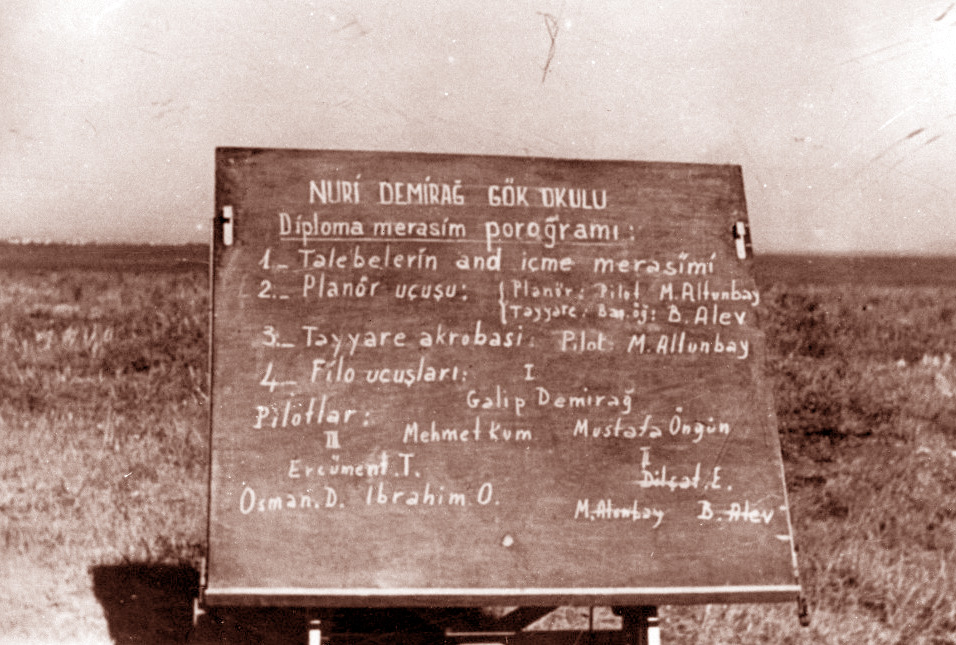 NURİ DEMİRAĞ GÖK OKULU
Diploma merasim poroğramı:
1_ Talebelerin and icme merasimi
2._ Planör uçuşu: Planör: Pilot M. Altunbay
Tayyare: Baş. öğ: B. Alev
3._ Tayyare akrobasi: Pilot: M. Altunbay
4_ Filo ucuşları: I
Galip Demirağ
Pilotlar: Mehmet Kum Mustafa Öngün
III II
Ercüment T. Dilşat. E.
Osman. D. Ibrahim O. M. Altunbay B. Alev